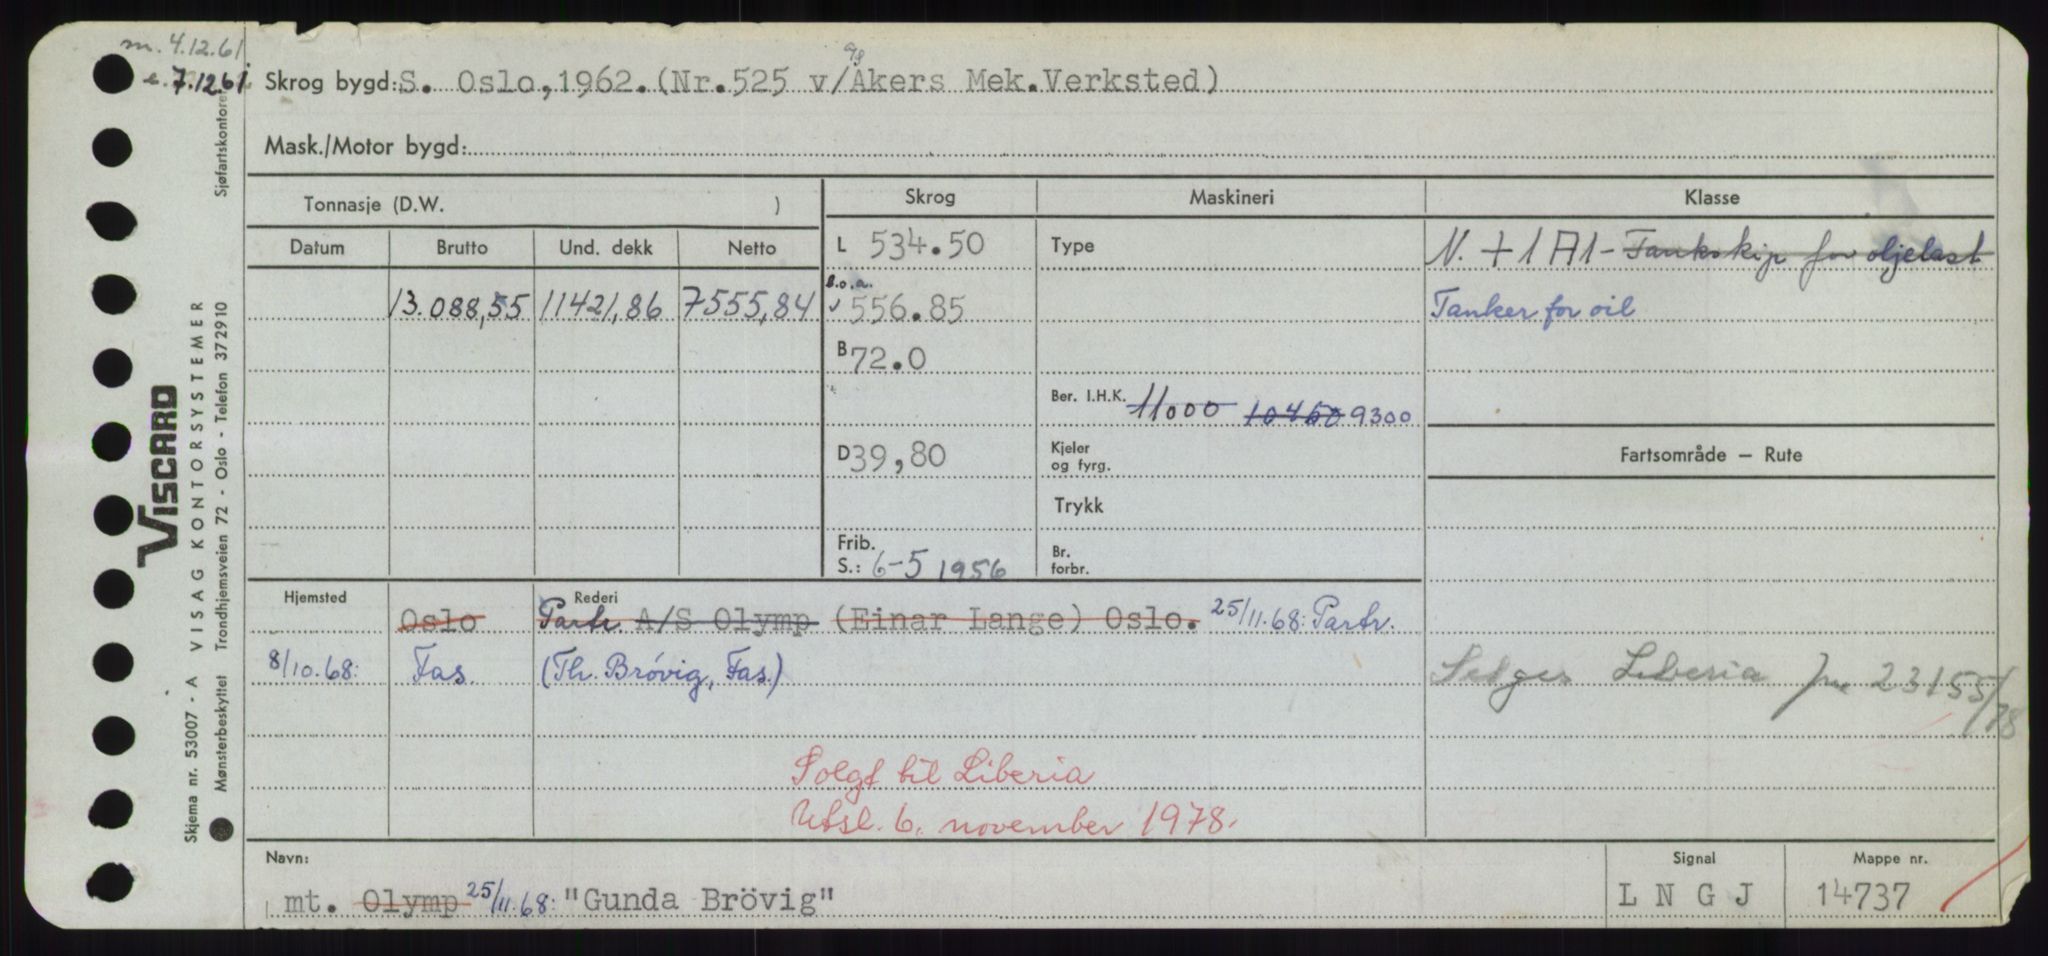 m. 4.12.61
e. 7.12.61
Skrog bygd: S. Oslo, 1962. (Nr. 525 v/ A/S Akers Mek. Verksted)
Mask./Motor bygd:
Tonnasje (D.W. ) Skrog Maskineri Klasse
Datum Brutto Und. dekk Netto L 534.50 Type N. + 1 A1 - Tankskip for oljelast
13.088,55 11421,86 7555,84 l.o.a. 556.85 Tanker for oil
B 72.0
Ber. I.H.K. 11000 10450 9300
D 39,80 Kjeler og fyrg. Fartsområde – Rute
Trykk
Frib. S.: 6-5 1956 Br. forbr.
Hjemsted Rederi
Oslo Partr. A/S Olymp (Einar Lange) Oslo. 25/11.68: Partr.
8/10.68: Fas. (Th. Brövig, Fas.)
Selges Liberia 23155/78
Solgt til Liberia
Utsl. 6. november 1978.
Navn: Signal Mappe nr.
mt. Olymp 25/11.68: "Gunda Brövig" L N G J 14737
VISCARD
Skjema nr. 53007 - A VISAG KONTORSYSTEMER
Mønsterbeskyttet Trondhjemsveien 72 - Oslo - Telefon 372910 Sjøfartskontoret